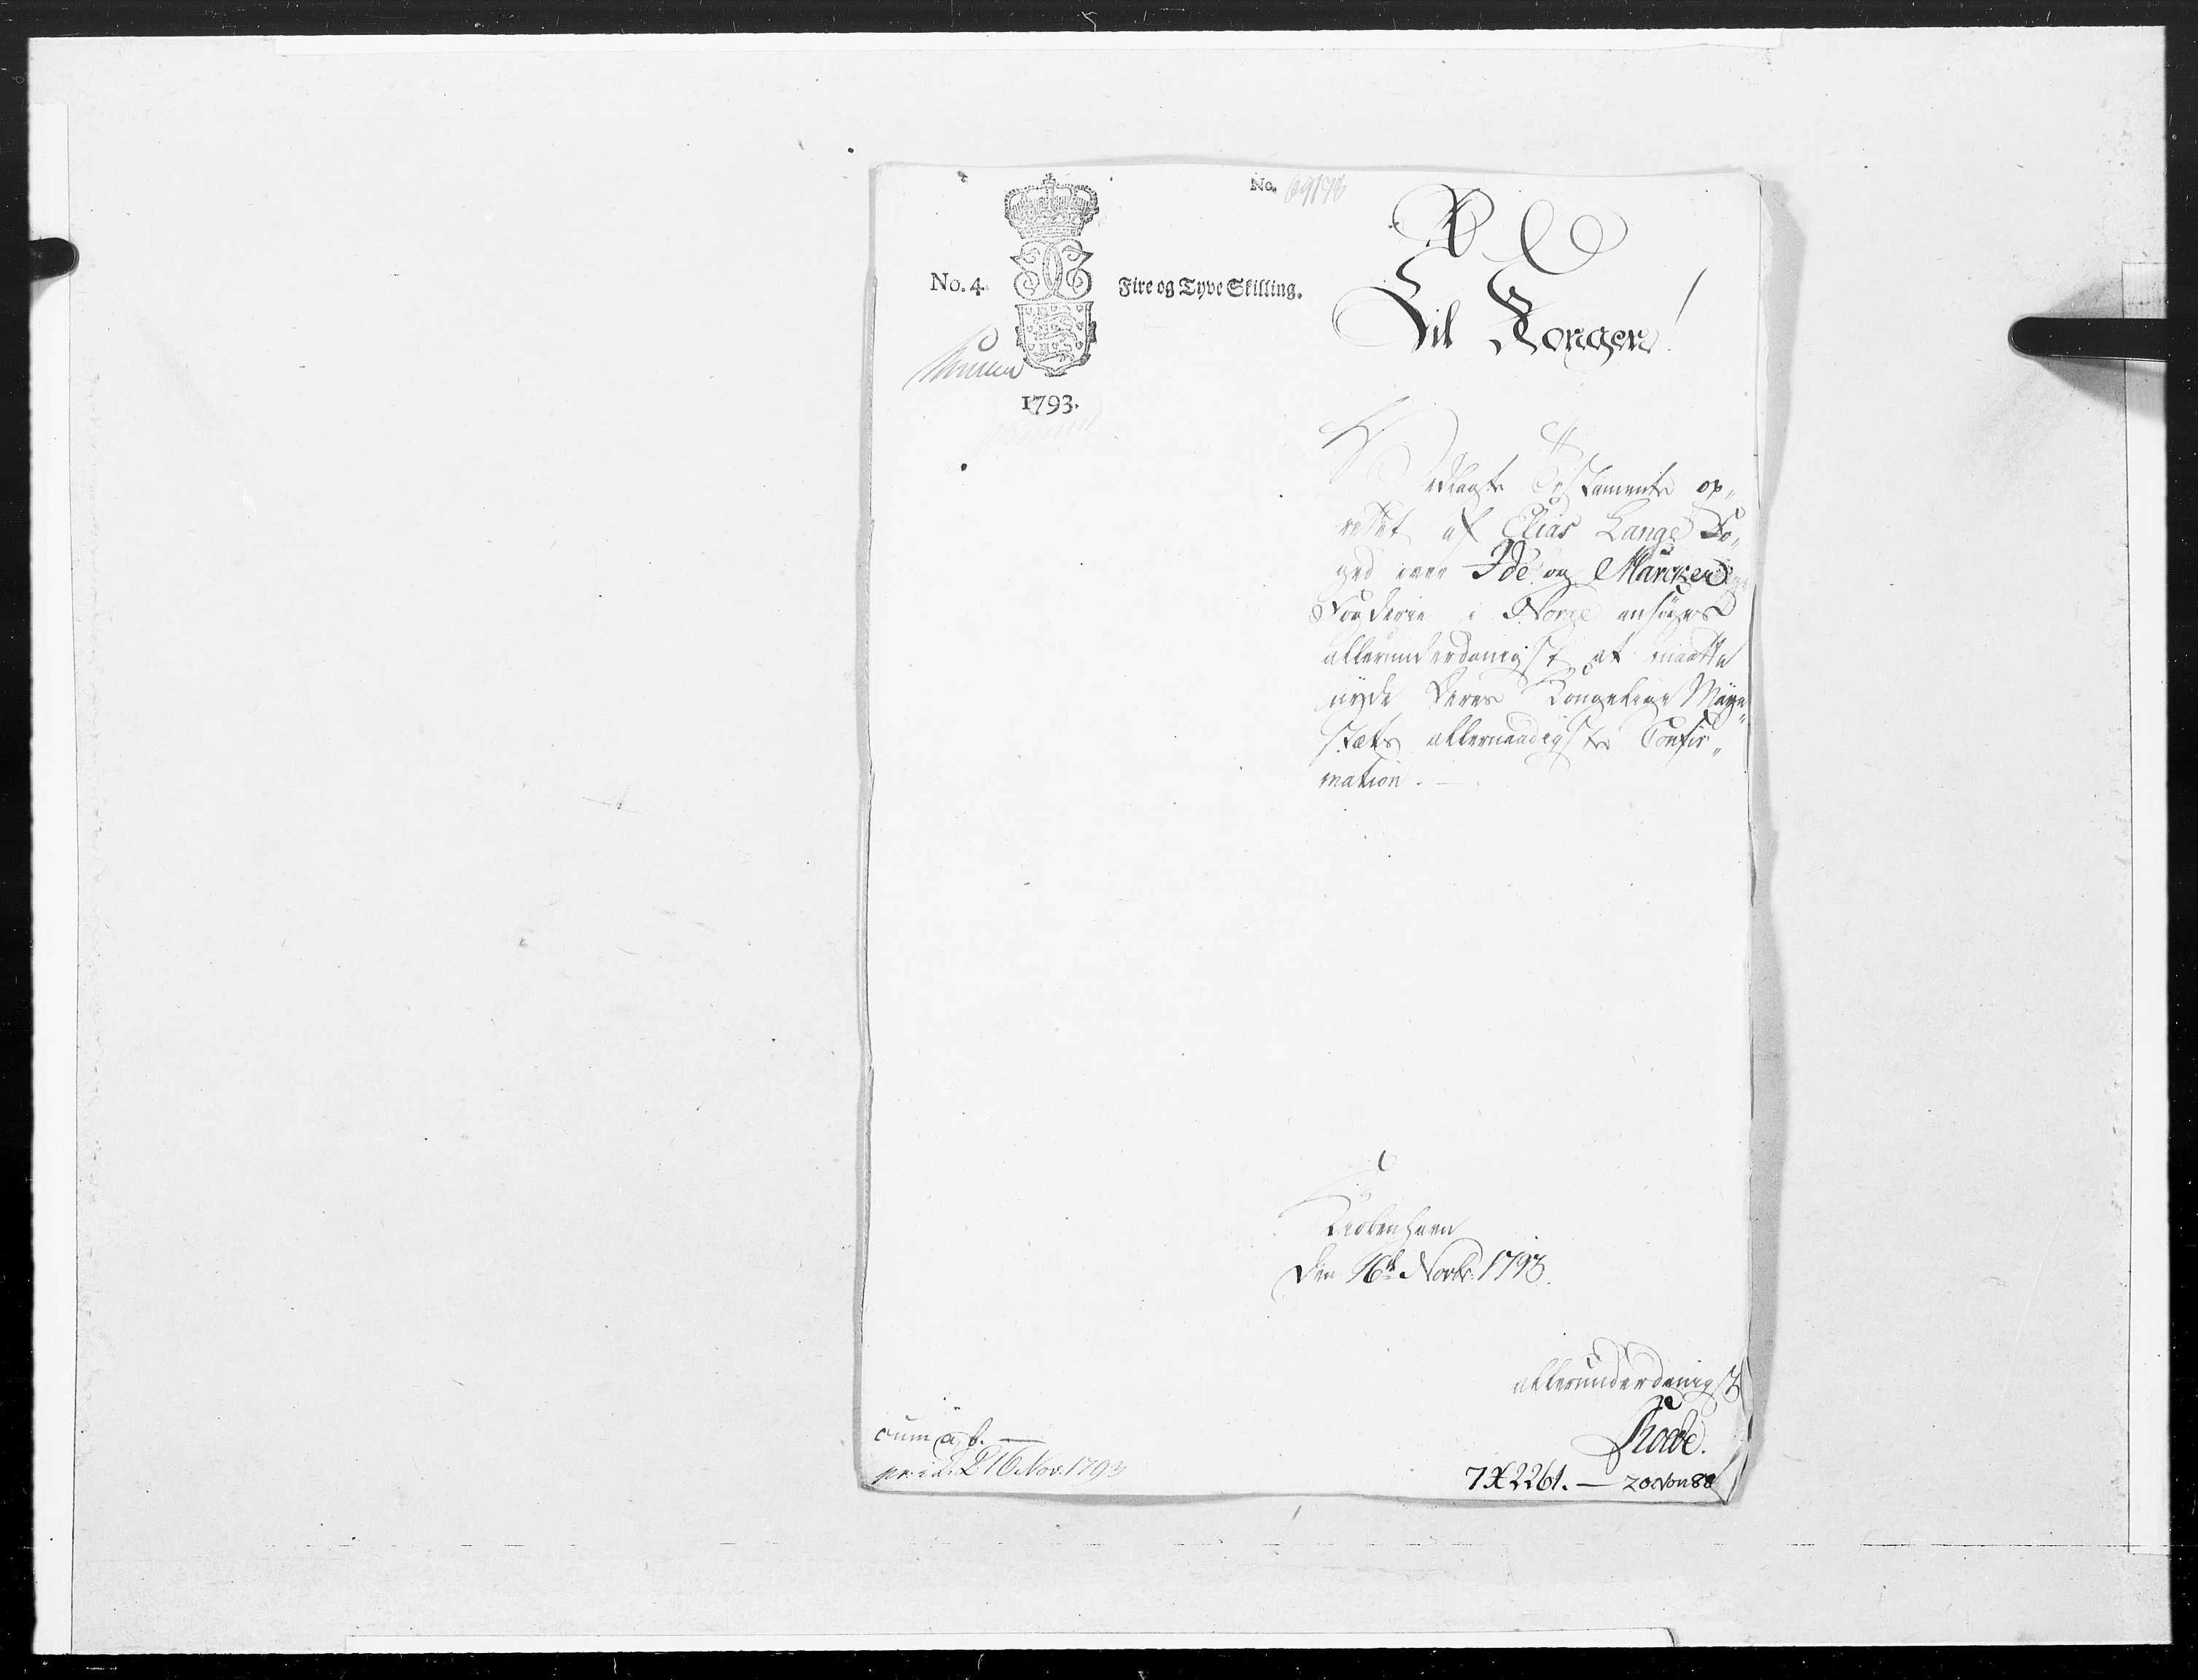 No.
No. 4.
Fire og Tyve Skilling.
1793.
Til Kongen!
Vedlagte Testamente op„
rettet af Elias Lange Fo„
ged over Ide og Marcker
Fogderie i Norge ansøges
allerunderdanigst at maatte
nyde Deres Kongelige Maye„
stæts allernaadigste Confir„
mation. —
Kiøbenhavn
den 16de Novbr: 1793.
allerunderdanigst
cum a, b. —
16 Nov. 1793
7X2261. — 20 Nov 88